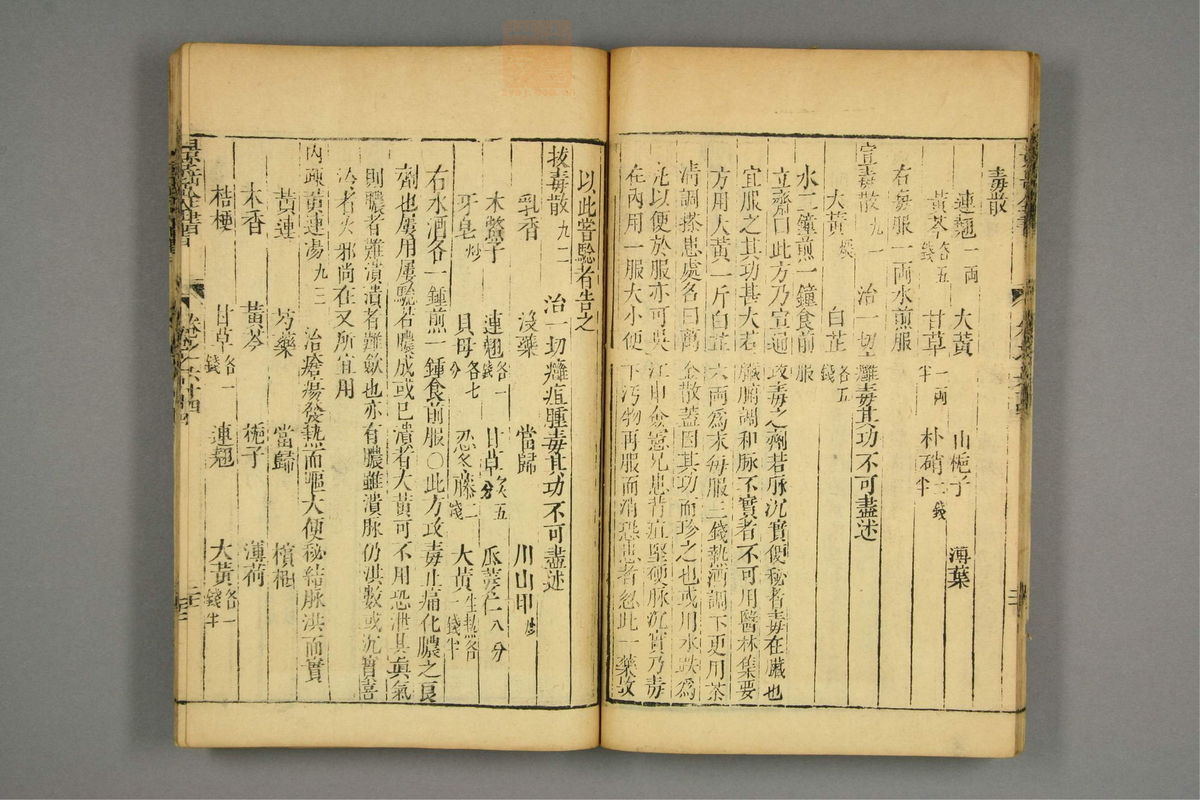 毒散
連翹一両 大黄 山梔子 薄葉
黃芩各五錢 甘草一両半 朴硝二錢半
右每服一両水煎服
宣毒散九一 治一切癰毒其功不可盡述
大黃煨 白芷各五錢
水二鐘煎一鐘食前服
立齋曰此方乃宣通攻毒之劑若脉沉實便秘者毒在臟也
宜服之其功甚大若臟腑調和脉不實者不可用醫林集要
方用大黃一斤白芷六両為末每服三錢熱酒調下更用茶
清調搽患處名曰萬金散蓋因其功而珍之也或用水跌為
丸以便於服亦可吳江申僉憲兄患背疽堅硬脉沉實乃毒
在內用一服大小便下污物再服而消恐患者忽此一藥故
以此嘗驗者告之
拔毒散九二 治一切癰疽腫毒其功不可盡述
乳香 沒藥 當歸 川山甲炒
木鱉子 連翹各一錢 甘草炙五分 瓜蔞仁八分
牙皂炒 貝母各七分 忍冬藤二錢 大黃生熟各一錢半
右水酒各一鍾煎一鍾食前服○此方攻毒止痛化膿之良
劑也屢用屢驗若膿成或已潰者大黃可不用恐泄其眞氣
則膿者難潰潰者難歛也亦有膿雖潰脉仍洪數或沉實喜
冷者火邪尚在又所宜用
內踈黃連湯九三 治瘡瘍發熱而嘔大便秘結脉洪而實
黃連 芍藥 當歸 檳榔
木香 黃芩 梔子 薄荷
桔梗 甘草各一錢 連翹 大黃各一錢半